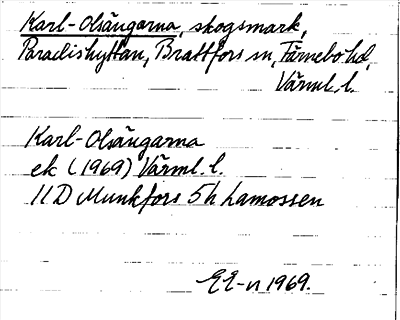 Karl-Olsängarna, skogsmark,
Paradishyttan, Brattfors sn, Färnebo hd,
Värml. l.
Karl-Olsängarna
ek (1969) Värml. l.
11D Munkfors 5h Lamossen
EE-n 1969.